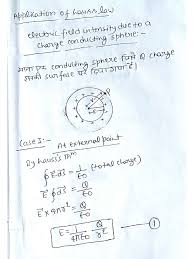 Application of Gauss law
electric field intensity due to a
charge conducting sphere:-
माना एक conducting sphere जिसे Q charge
उसकी surface पर दिया गया है।
Case I:- At external point
By Gauss's Thm
∮ E⃗ d⃗s = 1/ε0 (total charge)
∮ E⃗ d⃗s = Q/ε0
E⃗ × 4πr² = Q/ε0
E = 1/4πε0 Q/r² ①